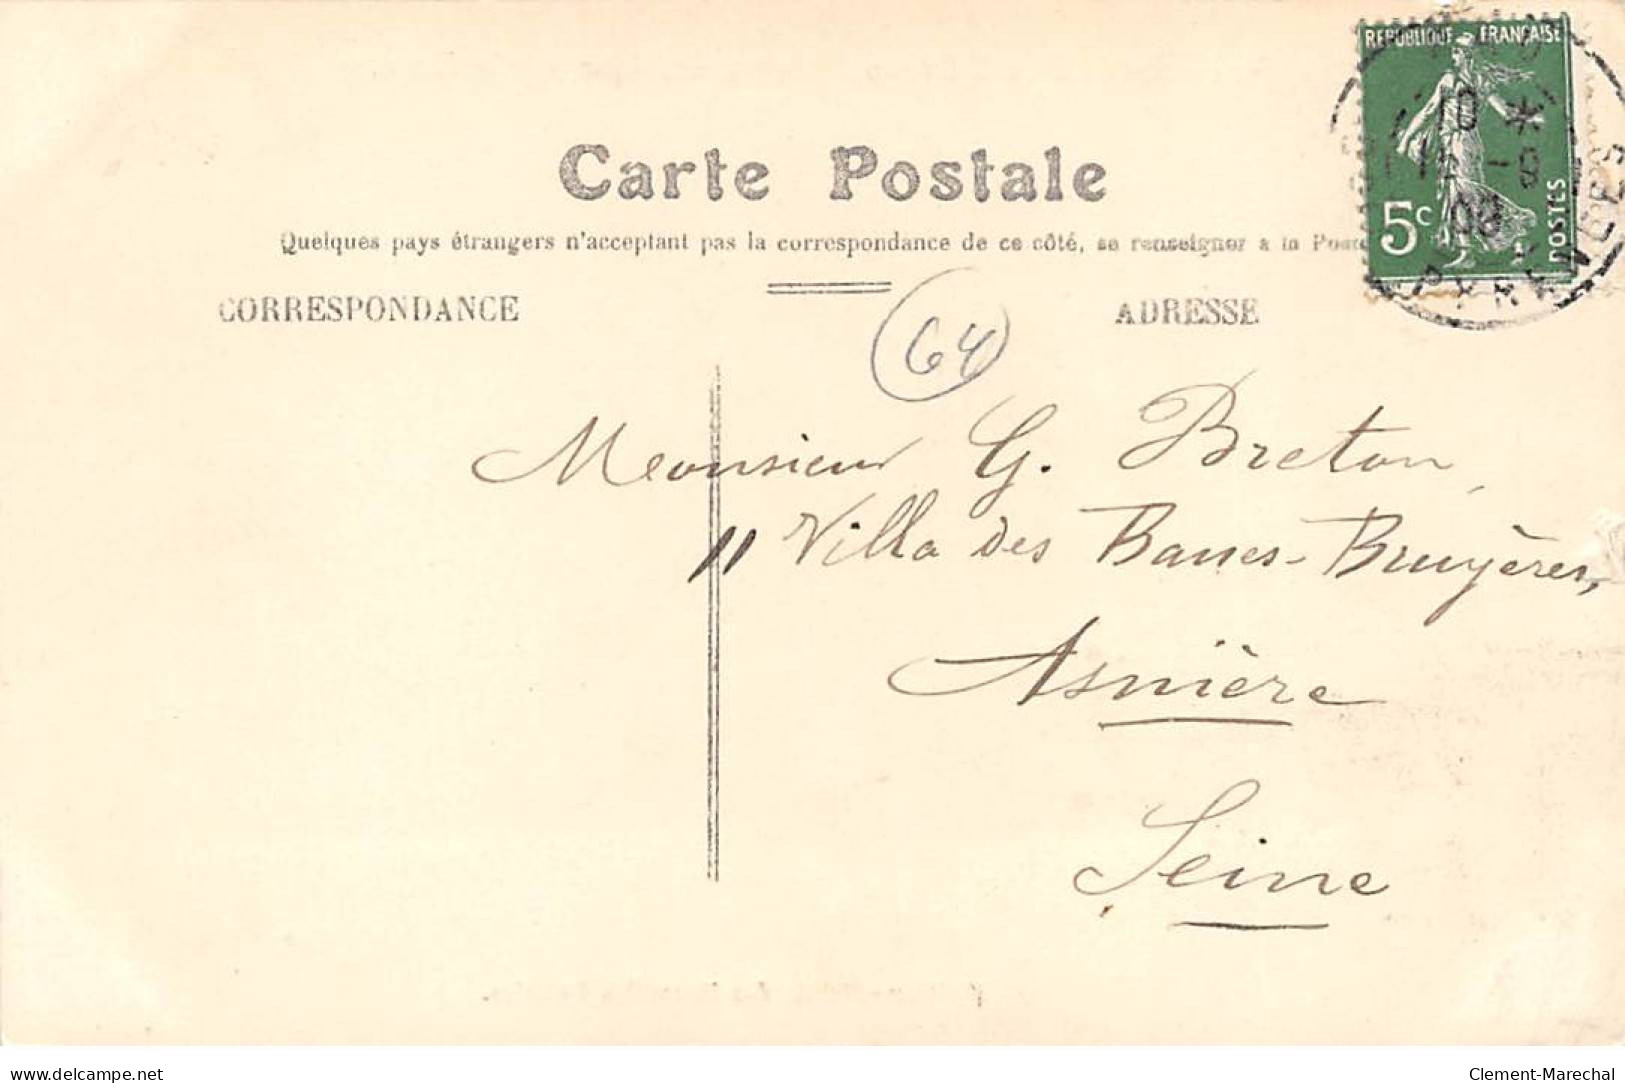 Carte Postale
Quelques pays étrangers n'acceptant pas la correspondance de ce côté, se renseigner à la Poste
CORRESPONDANCE
ADRESSE
REPUBLIQUE FRANÇAISE
5c
POSTES
10 *
15 -9
09
64
Monsieur G. Breton,
11 Villa des Basses-Bruyères,
Asnière
Seine
delcampe.net
Clement-Marechal